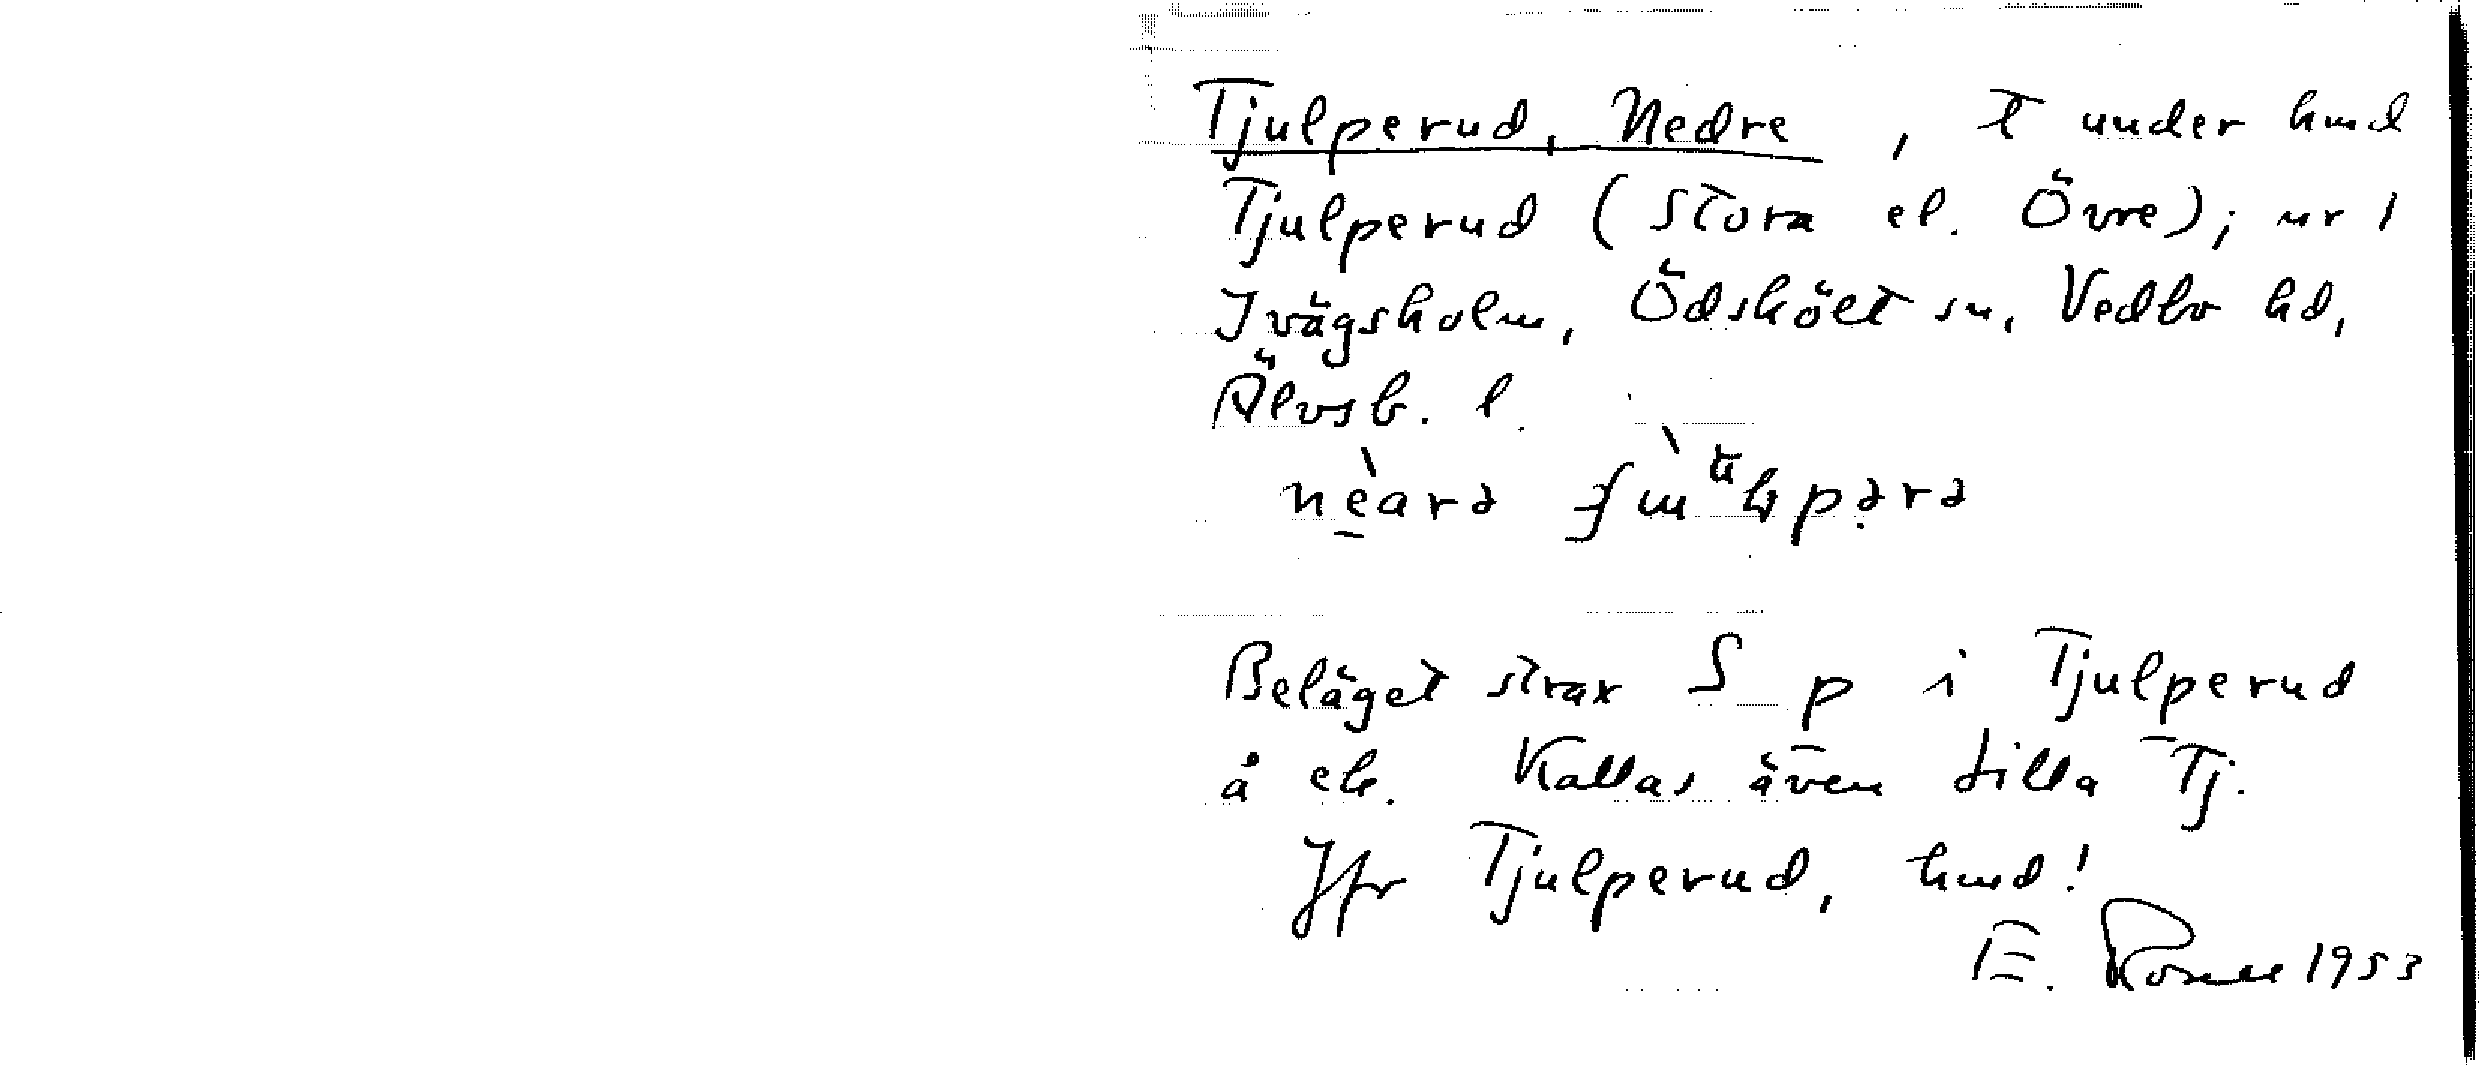 Tjulperud, Nedre, t under hmd
Tjulperud (Stora el. Övre); nr 1
Ivägsholm, Ödskölt sn, Vedbo hd,
Älvsb. l.
Beläget strax S p i Tjulperud
å ek. Kallas även Lilla Tj.
Jfr Tjulperud, hmd!
E. 1953